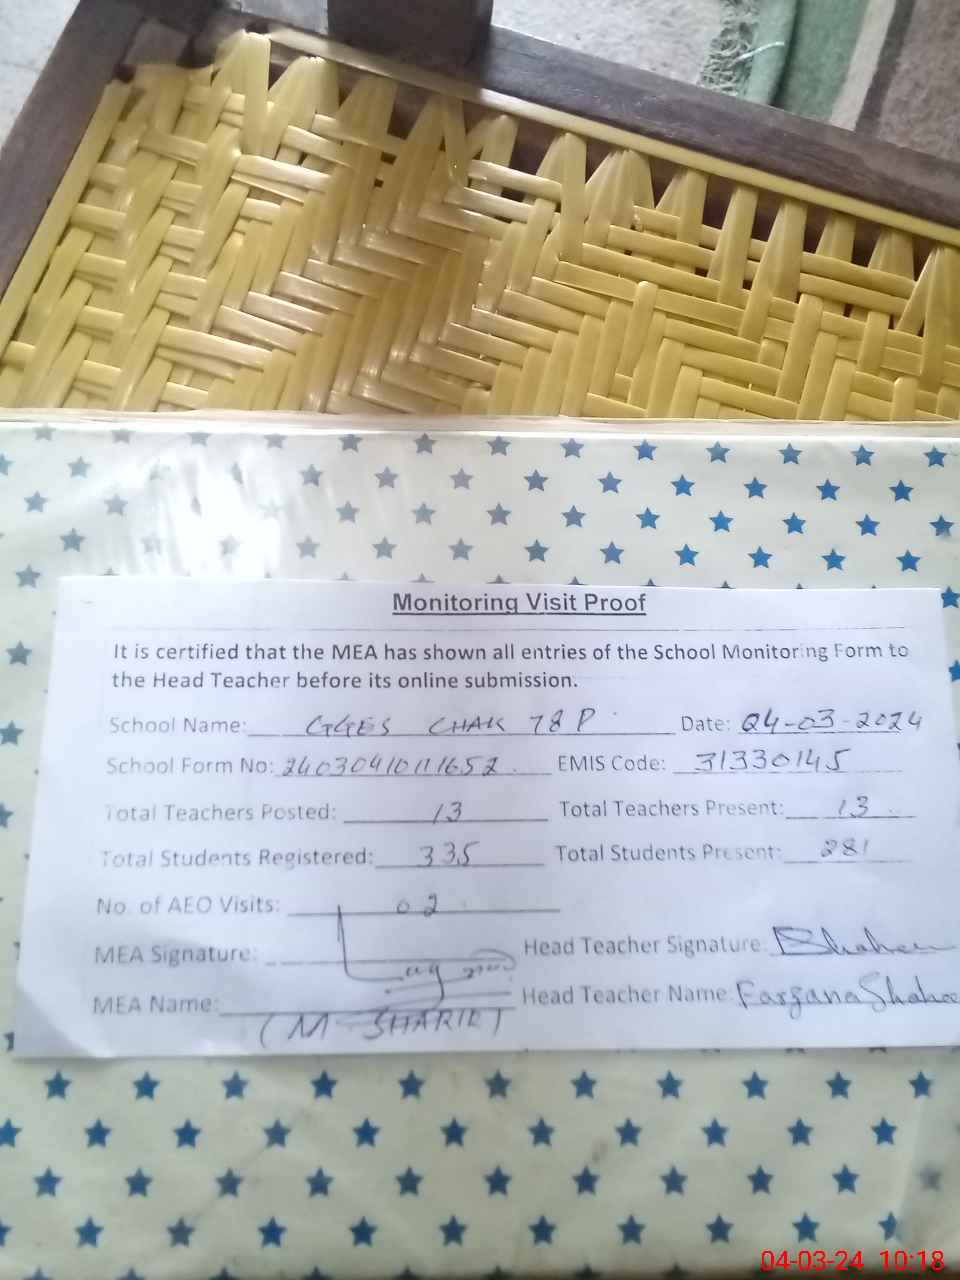 Monitoring Visit Proof
It is certified that the MEA has shown all entries of the School Monitoring Form to
the Head Teacher before its online submission.
School Name: GGES CHAK 78P Date: 04-03-2024
School Form No: 24030410111652 EMIS Code: 31330145
Total Teachers Posted: 13 Total Teachers Present: 13
Total Students Registered: 335 Total Students Present: 281
No. of AEO Visits: 02
MEA Signature: Head Teacher Signature:
MEA Name: (M SHARIF) Head Teacher Name: Farzana Shahee
04-03-24 10:18